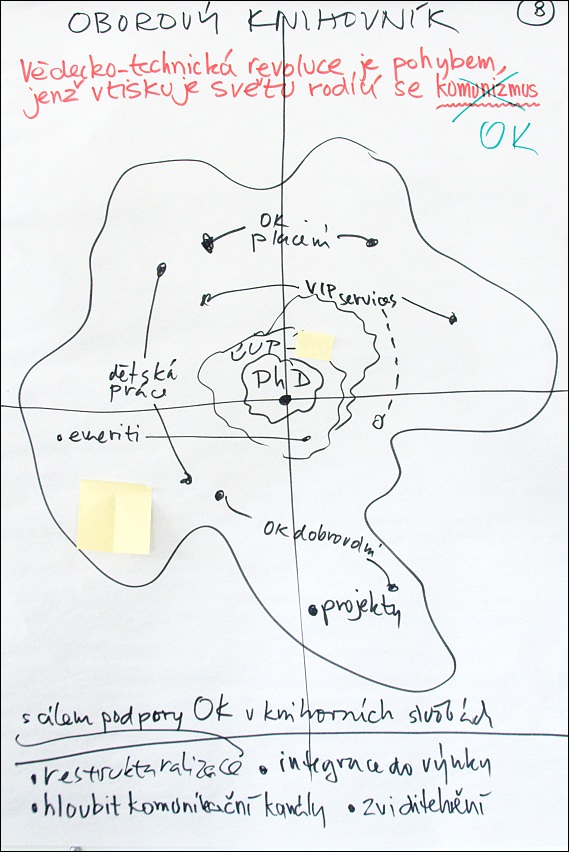 OBOROVÝ KNIHOVNÍK
8
Vědecko-technická revoluce je pohybem,
jenž vtiskuje světu rodící se komunízmus
OK
OK
placení
VIP services
ÚUP
PhD
dětská
práce
• emeriti
OK dobrovolní
• projekty
s cílem podpory OK v knihovních službách
• restrukturalizace • integrace do výuky
• hloubit komunikační kanály • zviditelnění